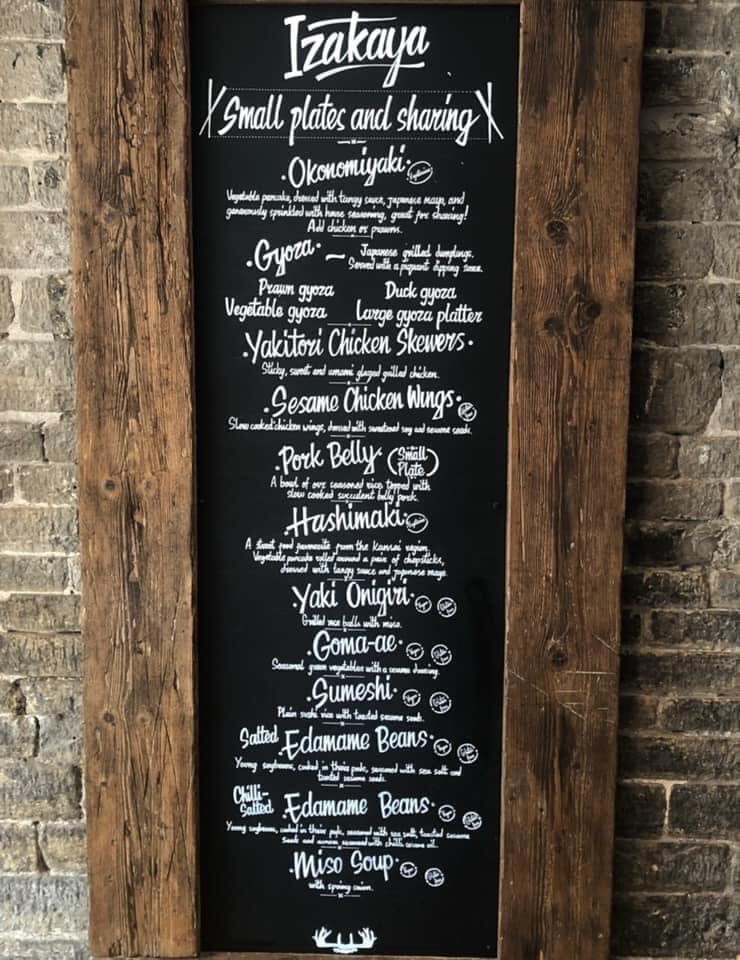 Izakaya
Small plates and sharing
Okonomiyaki Vegetarian
Vegetable pancake, dressed with tangy sauce, japanese mayo, and
generously sprinkled with house seasoning, great for sharing!
Add chicken or prawns.
Gyoza ~ Japanese grilled dumplings.
Served with a piquant dipping sauce.
Prawn gyoza Duck gyoza
Vegetable gyoza Large gyoza platter
Yakitori Chicken Skewers
Sticky, sweet and umami glazed grilled chicken.
Sesame Chicken Wings
Slow cooked chicken wings, dressed with sweetened soy and sesame seeds.
Pork Belly (Small Plate)
A bowl of our seasoned rice topped with
slow cooked succulent belly pork.
Hashimaki Vegetarian
A street food favourite from the Kansai region.
Vegetable pancake rolled around a pair of chopsticks,
dressed with tangy sauce and japanese mayo.
Yaki Onigiri Vegan Gluten free
Grilled rice balls with miso.
Goma-ae Vegan Gluten free
Seasonal green vegetables with a sesame dressing.
Sumeshi Vegan Gluten free
Plain sushi rice with toasted sesame seeds.
Salted Edamame Beans Vegan Gluten free
Young soybeans, cooked in their pods, seasoned with sea salt and
toasted sesame seeds.
Chilli-Salted Edamame Beans Vegan Gluten free
Young soybeans, cooked in their pods, seasoned with sea salt, toasted sesame
seeds and seasoned with chilli sesame oil.
Miso Soup Vegan Gluten free
with spring onion.